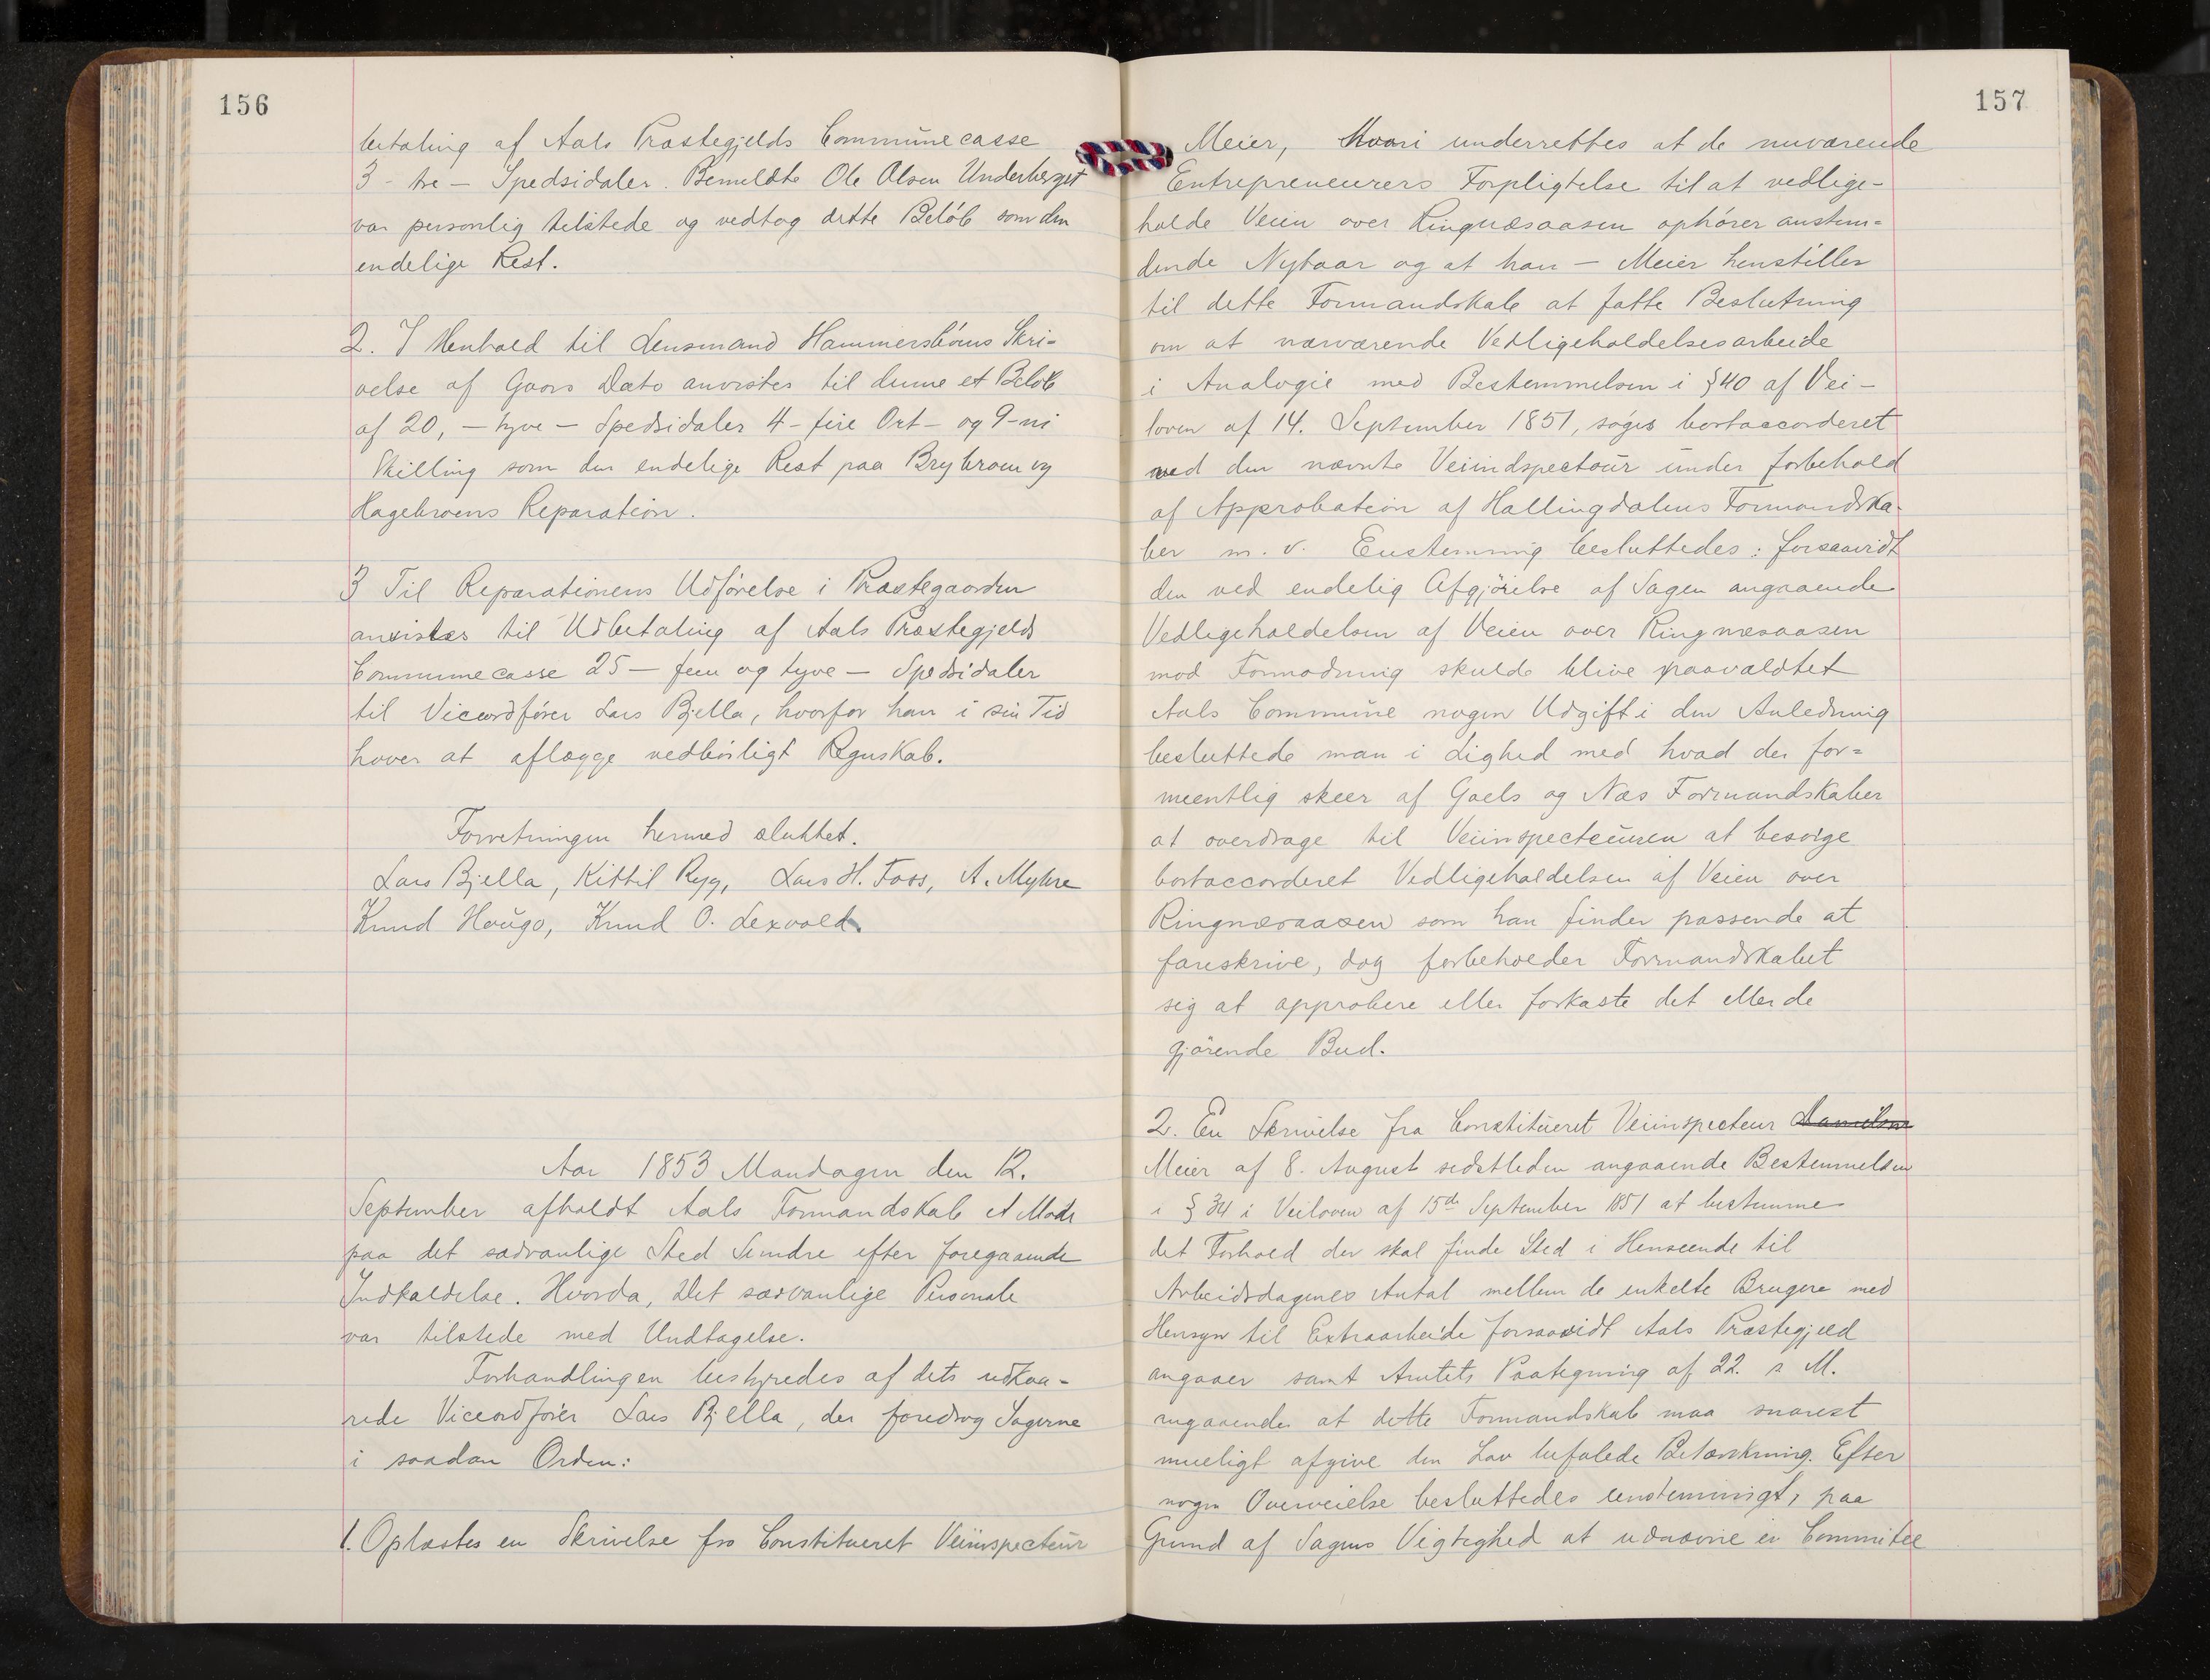 156
betaling af Aals Præstegjelds Communecasse
3 - tre - Spedsidaler. Bemeldte Ole Olsen Underberget
var personlig tilstede og vedtog dette Beløb som den
endelige Rest.
2. I Henhold til Lensmand Hammersbøens Skri-
velse af Gaars Dato anvistes til denne et Beløb
af 20, - tyve - Spedsidaler 4 - fire Ort - og 9 - ni
Skilling som den endelige Rest paa Brybroen og
Hagebroens Reparation.
3 Til Reparationens Udførelse i Præstegaarden
anvistes til Udbetaling af Aals Præstegjelds
Communecasse 25 - fem og tyve - Spedsidaler
til Viceordfører Lars Bjella, hvorfor han i sin Tid
haver at aflægge vedbørligt Regnskab.
Forretningen hermed sluttet.
Lars Bjella, Kittil Ryg, Lars H. Foos, A. Myhre
Knud Haugo, Knud O. Lexvold.
Aar 1853 Mandagen den 12.
September afholdt Aals Formandskab et Møde
paa det sædvanlige Sted Sundre efter foregaaende
Indkaldelse. Hvorda, Det sædvanlige Personale
var tilstede med Undtagelse.
Forhandlingen bestyredes af dets udkaa-
rede Viceordfører Lars Bjella, der foredrog Sagerne
i saadan Orden:
1. Oplæstes en Skrivelse fra Constitueret Veiinspecteur
157
Meier, hvori underrettes at de nuværende
Entrepreneurers Forpligtelse til at vedlige-
holde Veien over Ringnæsaasen ophører anstun=
dende Nytaar og at han - Meier henstiller
til dette Formandskab at fatte Beslutning
om at nærværende Vedligeholdelsesarbeide
i Analogie med Bestemmelsen i §40 af Vei-
loven af 14. September 1851, søges bortaccorderet
ved den nævnte Veiindspectour under forbehold
af Approbation af Hallingdalens Formandska-
ber m. v. Enstemmig besluttedes: forsaavidt
den ved endelig Afgjørelse af Sagen angaaende
Vedligeholdelsen af Veien over Ringnæsaasen
mod Formodning skulde blive paavældtet
Aals Commune nogen Udgift i den Anledning
besluttede man i Lighed med hvad der for=
meentlig skeer af Goels og Næs Formandskaber
at overdrage til Veiinspecteuren at besørge
bortaccorderet Vedligeholdelsen af Veien over
Ringnæsaasen som han finder passende at
foreskrive, dog forbeholder Formandskabet
sig at approbere eller forkaste det eller de
gjørende Bud.
2. En Skrivelse fra Constitueret Veiinspecteur
Meier af 8. August sidstleden angaaende Bestemmelsen
i § 34 i Veiloven af 15de September 1851 at bestemme
det Forhold der skal finde Sted i Henseende til
Arbeidsdagenes Antal mellem de enkelte Brugere med
Hensyn til Extraarbeide forsaavidt Aals Præstegjeld
angaaer samt Amtets Paategning af 22. s. M.
angaaende at dette Formandskab maa snarest
mueligt afgive den Lov befalede Betænkning. Efter
nogen Overveielse besluttedes eenstemmigt, paa
Grund af Sagens Vigtighed at udnævne en Commitee